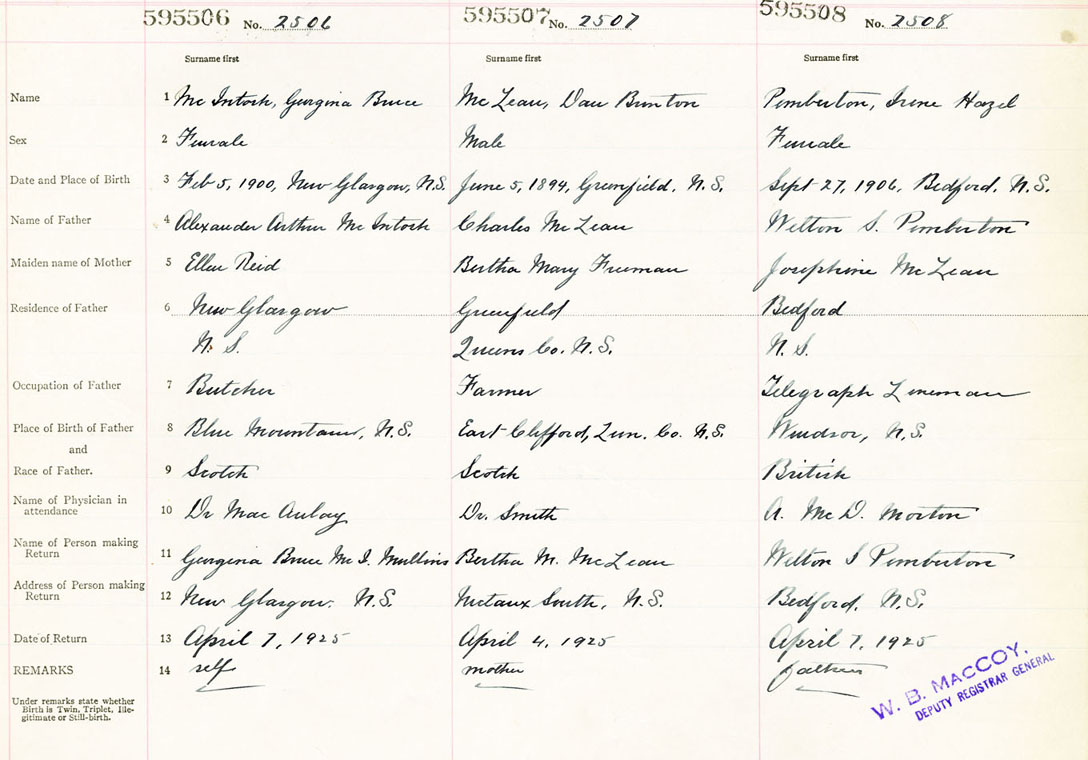 595506 No. 2506 595507 No. 2507 595508 No. 2508
Surname first Surname first Surname first
Name 1 Mc Intosh, Georgina Bruce Mc Lean, Dau Bunton Pemberton, Irene Hazel
Sex 2 Female Male Female
Date and Place of Birth 3 Feb 5, 1900, New Glasgow, N.S. June 5, 1894, Greenfield, N.S. Sept 27, 1906, Bedford, N.S.
Name of Father 4 Alexander Arthur Mc Intosh Charles Mc Lean Welton S. Pemberton
Maiden name of Mother 5 Ellen Reid Bertha Mary Freeman Josephine Mc Lean
Residence of Father 6 New Glasgow Greenfield Bedford
N. S. Queens Co. N.S. N. S.
Occupation of Father 7 Butcher Farmer Telegraph Lineman
Place of Birth of Father 8 Blue Mountain, N.S. East Clifford, Lun. Co. N.S. Windsor, N.S.
and
Race of Father. 9 Scotch Scotch British
Name of Physician in
attendance 10 Dr Mac Aulay Dr. Smith A. Mc D. Morton
Name of Person making
Return 11 Georgina Bruce Mc I. Mullins Bertha M. McLean Welton S Pemberton
Address of Person making
Return 12 New Glasgow. N.S. South, N.S. Bedford, N.S.
Date of Return 13 April 7, 1925 April 4, 1925 April 7, 1925
REMARKS 14 self mother father
Under remarks state whether
Birth is Twin, Triplet, Ille-
gitimate or Still-birth.
W. B. MACCOY,
DEPUTY REGISTRAR GENERAL